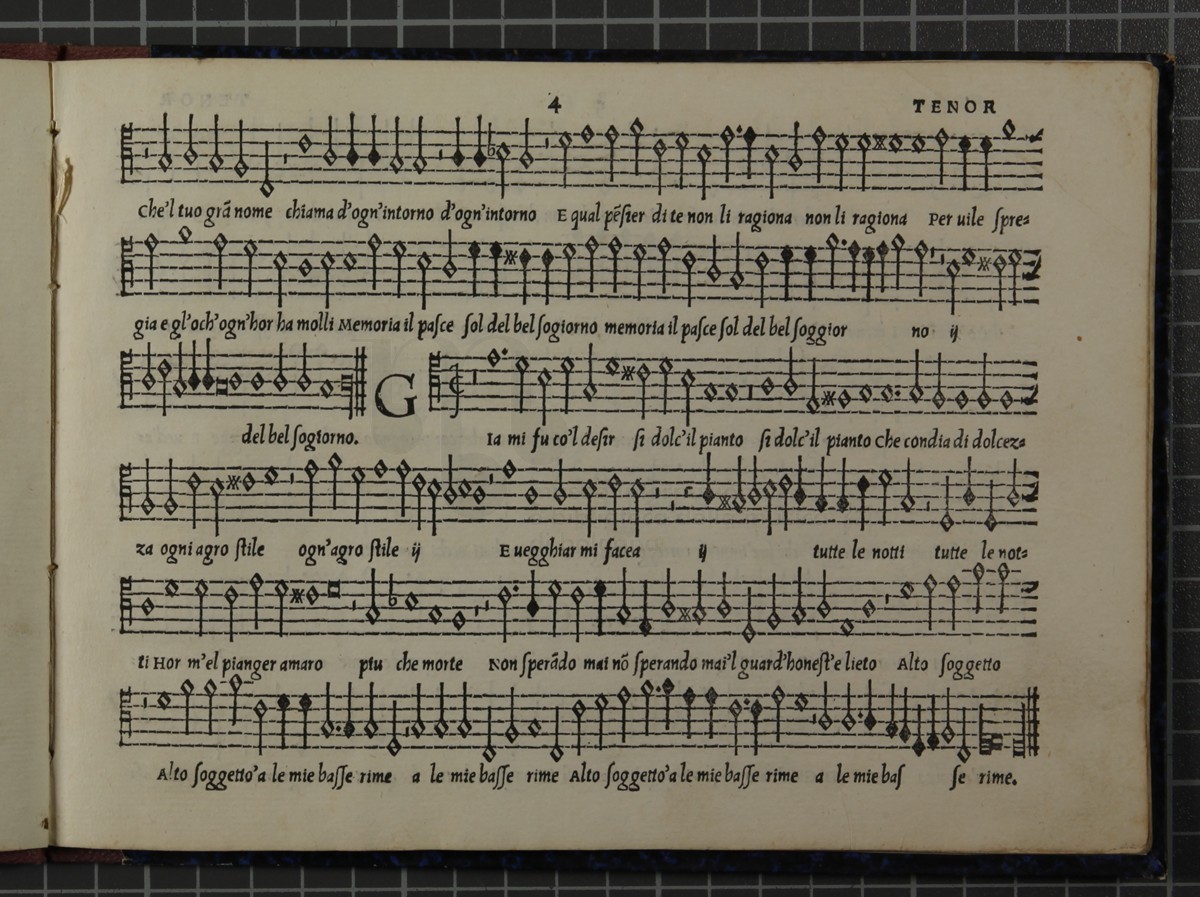 4 TENOR
Che'l tuo grã nome chiama d'ogn'intorno d'ogn'intorno E qual pẽsier di te non li ragiona non li ragiona Per uile spre=
gia e gl'och'ogn'hor ha molli Memoria il pasce sol del bel sogiorno memoria il pasce sol del bel soggior no ij
G
del bel sogiorno. Ia mi fu co'l desir si dolc'il pianto si dolc'il pianto Che condia di dolcez=
za ogni agro stile ogn'agro stile ij E uegghiar mi facea ij tutte le notti tutte le not=
ti Hor m'el pianger amaro piu che morte Non sperãdo mai nõ sperando mai'l guard'honest'e lieto Alto soggetto
Alto soggetto'a le mie basse rime a le mie basse rime Alto soggetto'a le mie basse rime a le mie bas se rime.